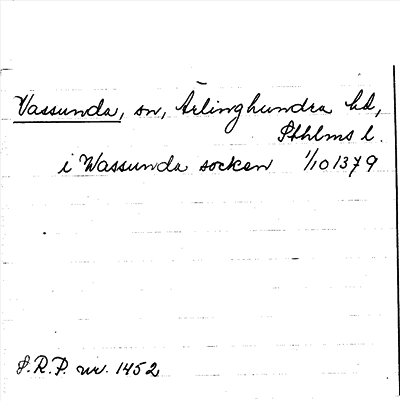 Vassunda, sn, Ärlinghundra hd,
Sthlms l.
i Wassunda socken 1/10 1379
S.R.P. nr. 1452